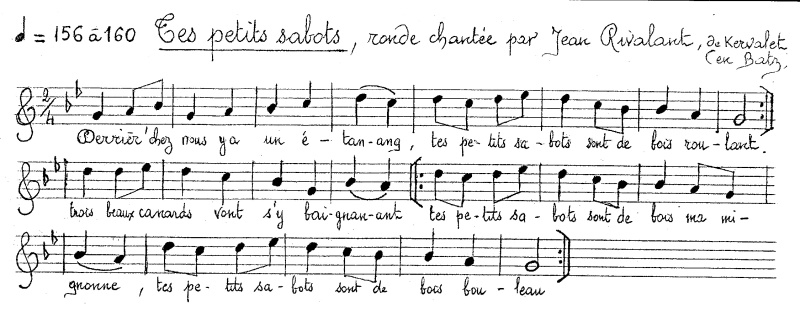 = 156 à 160 Tes petits sabots, ronde chantée par Jean Rivalant, de Kervalet
(en Batz.
2/4
Derrièr' chez nous y a un é - tan - ang, tes pe - tits sa - bots sont de bois rou - lant.
trois beaux canards vont s'y bai - gnan - ant tes pe - tits sa - bots sont de bois ma mi -
gnonne, tes pe - tits sa - bots sont de bois bou - leau